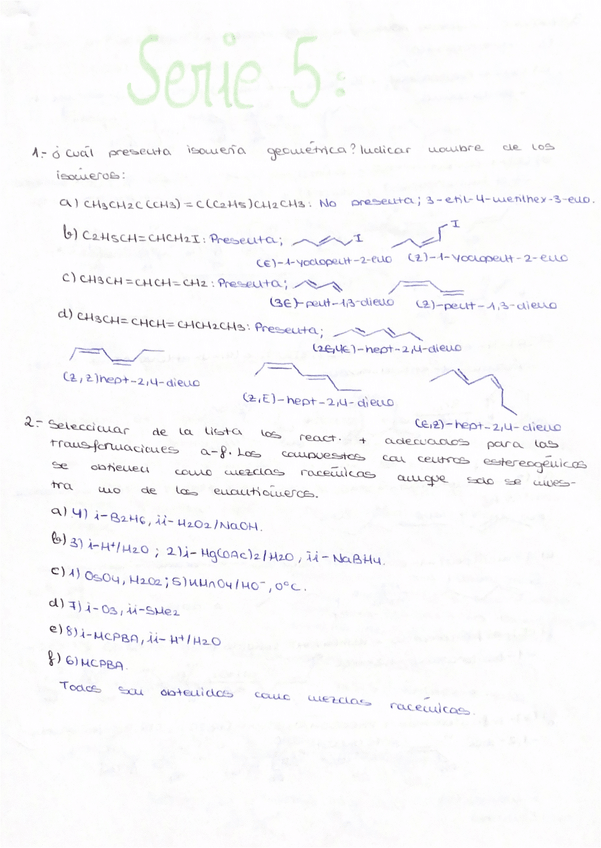 Serie 5:
1.- ¿Cuál presenta isomería geométrica? Indicar nombre de los
isómeros:
a) CH3CH2C(CH3)=C(C2H5)CH2CH3: No presenta; 3-etil-4-metilhex-3-eno.
b) C2H5CH=CHCH2I: Presenta; I I
(E)-1-yodopent-2-eno (Z)-1-yodopent-2-eno
c) CH3CH=CHCH=CH2: Presenta;
(3E)-pent-1,3-dieno (Z)-pent-1,3-dieno
d) CH3CH=CHCH=CHCH2CH3: Presenta;
(2E,4E)-hept-2,4-dieno
(Z,Z)hept-2,4-dieno
(Z,E)-hept-2,4-dieno
(E,Z)-hept-2,4-dieno
2.- Seleccionar de la lista los react. + adecuados para las
transformaciones a-f. Los compuestos con centros estereogénicos
se obtienen como mezclas racémicas aunque solo se mues-
tra uno de los enantiómeros.
a) 4) i-B2H6, ii-H2O2/NaOH.
b) 3) i-H+/H2O; 2) i-Hg(OAc)2/H2O, ii-NaBH4.
c) 1) OsO4, H2O2; 5) KMnO4/HO-, 0°C.
d) 7) i-O3, ii-SMe2
e) 8) i-MCPBA, ii-H+/H2O
f) 6) MCPBA.
Todos son obtenidos como mezclas racémicas.